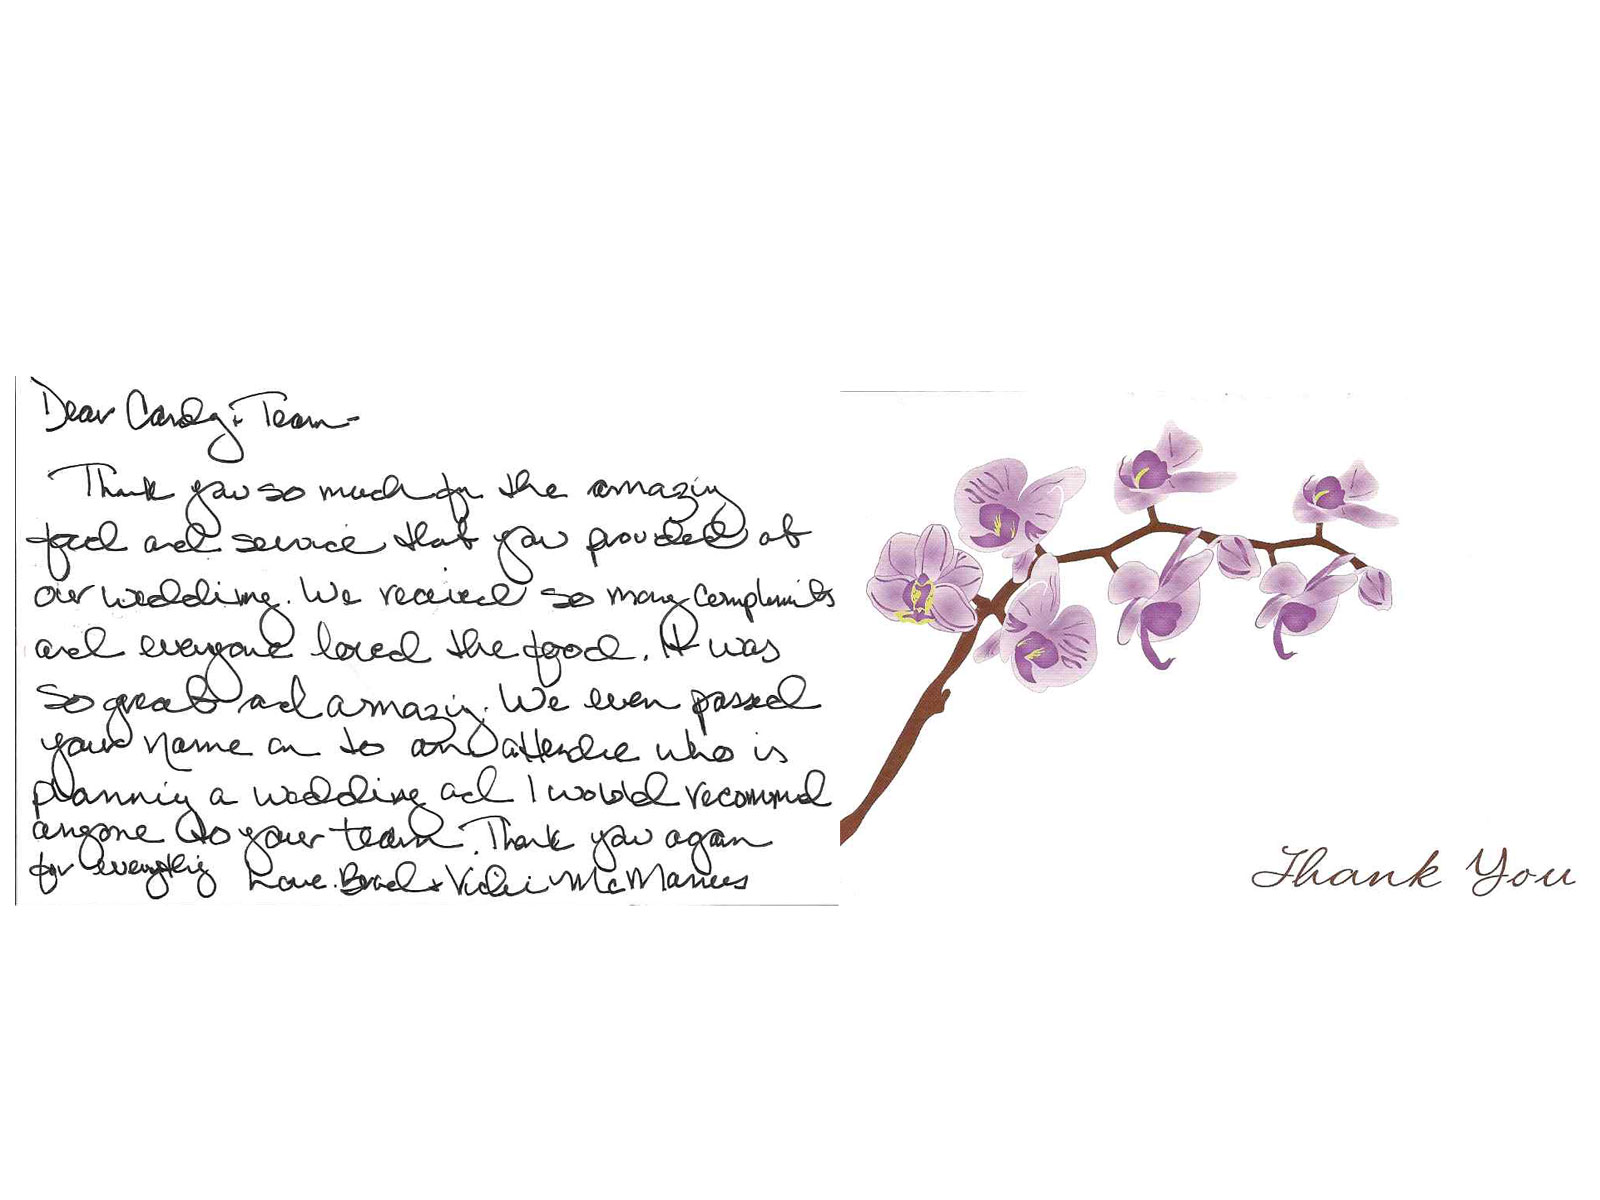 Dear Candy + Team -
Thank you so much for the amazing
food and service that you provided at
our wedding. We received so many compliments
and everyone loved the food. It was
so great and amazing. We even passed
your name on to an attendee who is
planning a wedding and I would recommend
anyone to your team. Thank you again
for everything Love. Brad + Vicki McManus
Thank You